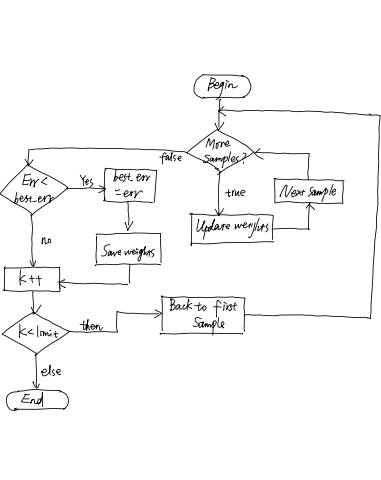 Begin
More
Samples?
false
true
Update weights
Next sample
Err <
best_err
Yes
best_err
= err
Save weights
no
K++
K < limit
then
Back to first
Sample
else
End